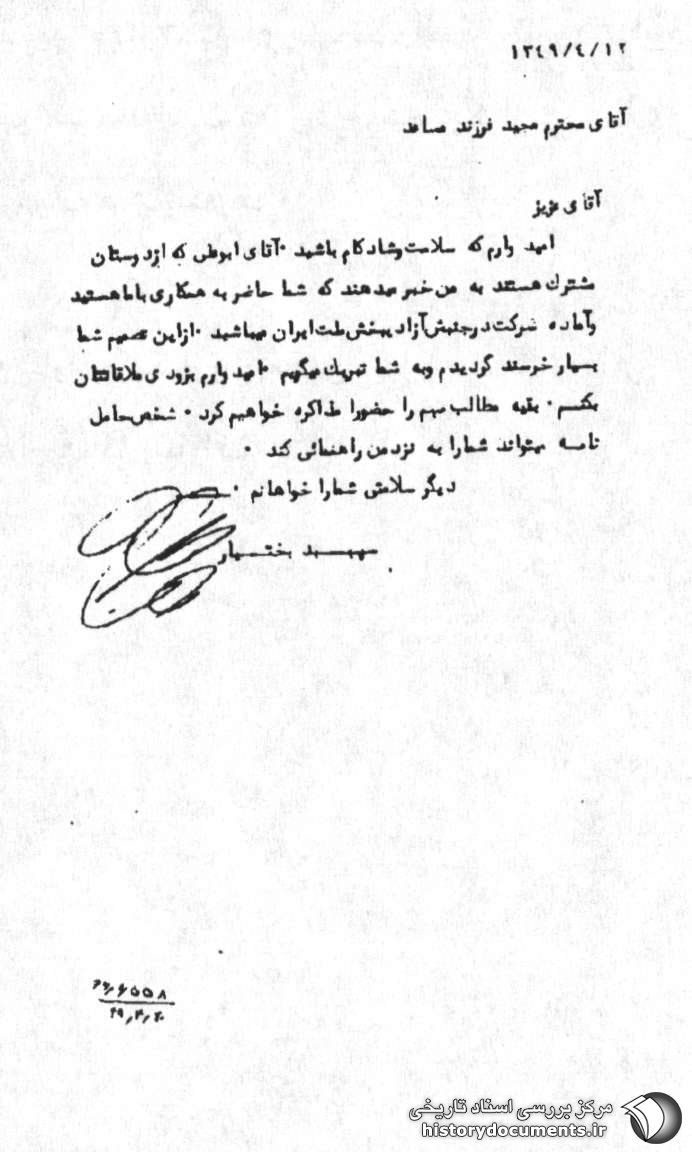 ۱۳٤۹/٤/۱۲
آقای محترم مجید فرزند ساعد
آقای عزیز
امید وارم که سلامت وشاد کام باشید ۰ آقای ابوطی که ازد وستان
مشترك هستند به من خبر میدهند که شما حاضر به همکاری باما هستید
وآماد ه شرکت درجنبش آزاد یبخش ملت ایران میباشید ۰ ازاین تصمیم شما
بسیار خرسند گردیدم وبه شما تبریك میگویم ۰ امید وارم بزود ی ملاقاتتان
بکنم ۰ بقیه مطالب مهم را حضورا مذاکره خواهیم کرد ۰ شخص حامل
نامه میتواند شمارا به نزد من راهنمائی کند ۰
دیگر سلامتی شمارا خواهانم ۰
سپهبد بختیار
مرکز بررسی اسناد تاریخی
historydocuments.ir